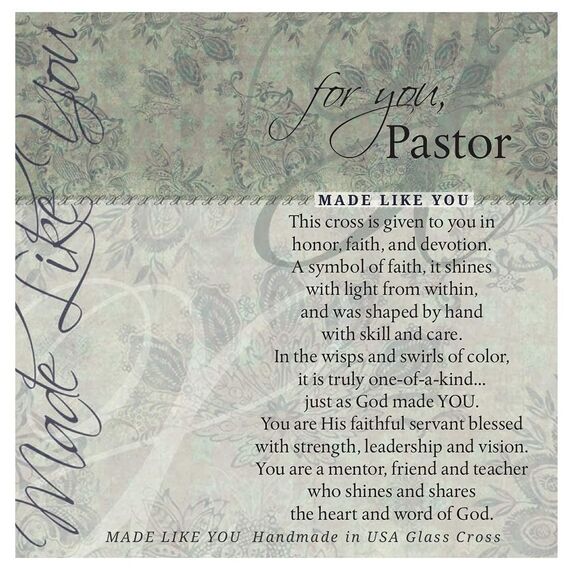 Made Like You
for you,
Pastor
MADE LIKE YOU
This cross is given to you in
honor, faith, and devotion.
A symbol of faith, it shines
with light from within,
and was shaped by hand
with skill and care.
In the wisps and swirls of color,
it is truly one-of-a-kind...
just as God made YOU.
You are His faithful servant blessed
with strength, leadership and vision.
You are a mentor, friend and teacher
who shines and shares
the heart and word of God.
MADE LIKE YOU Handmade in USA Glass Cross